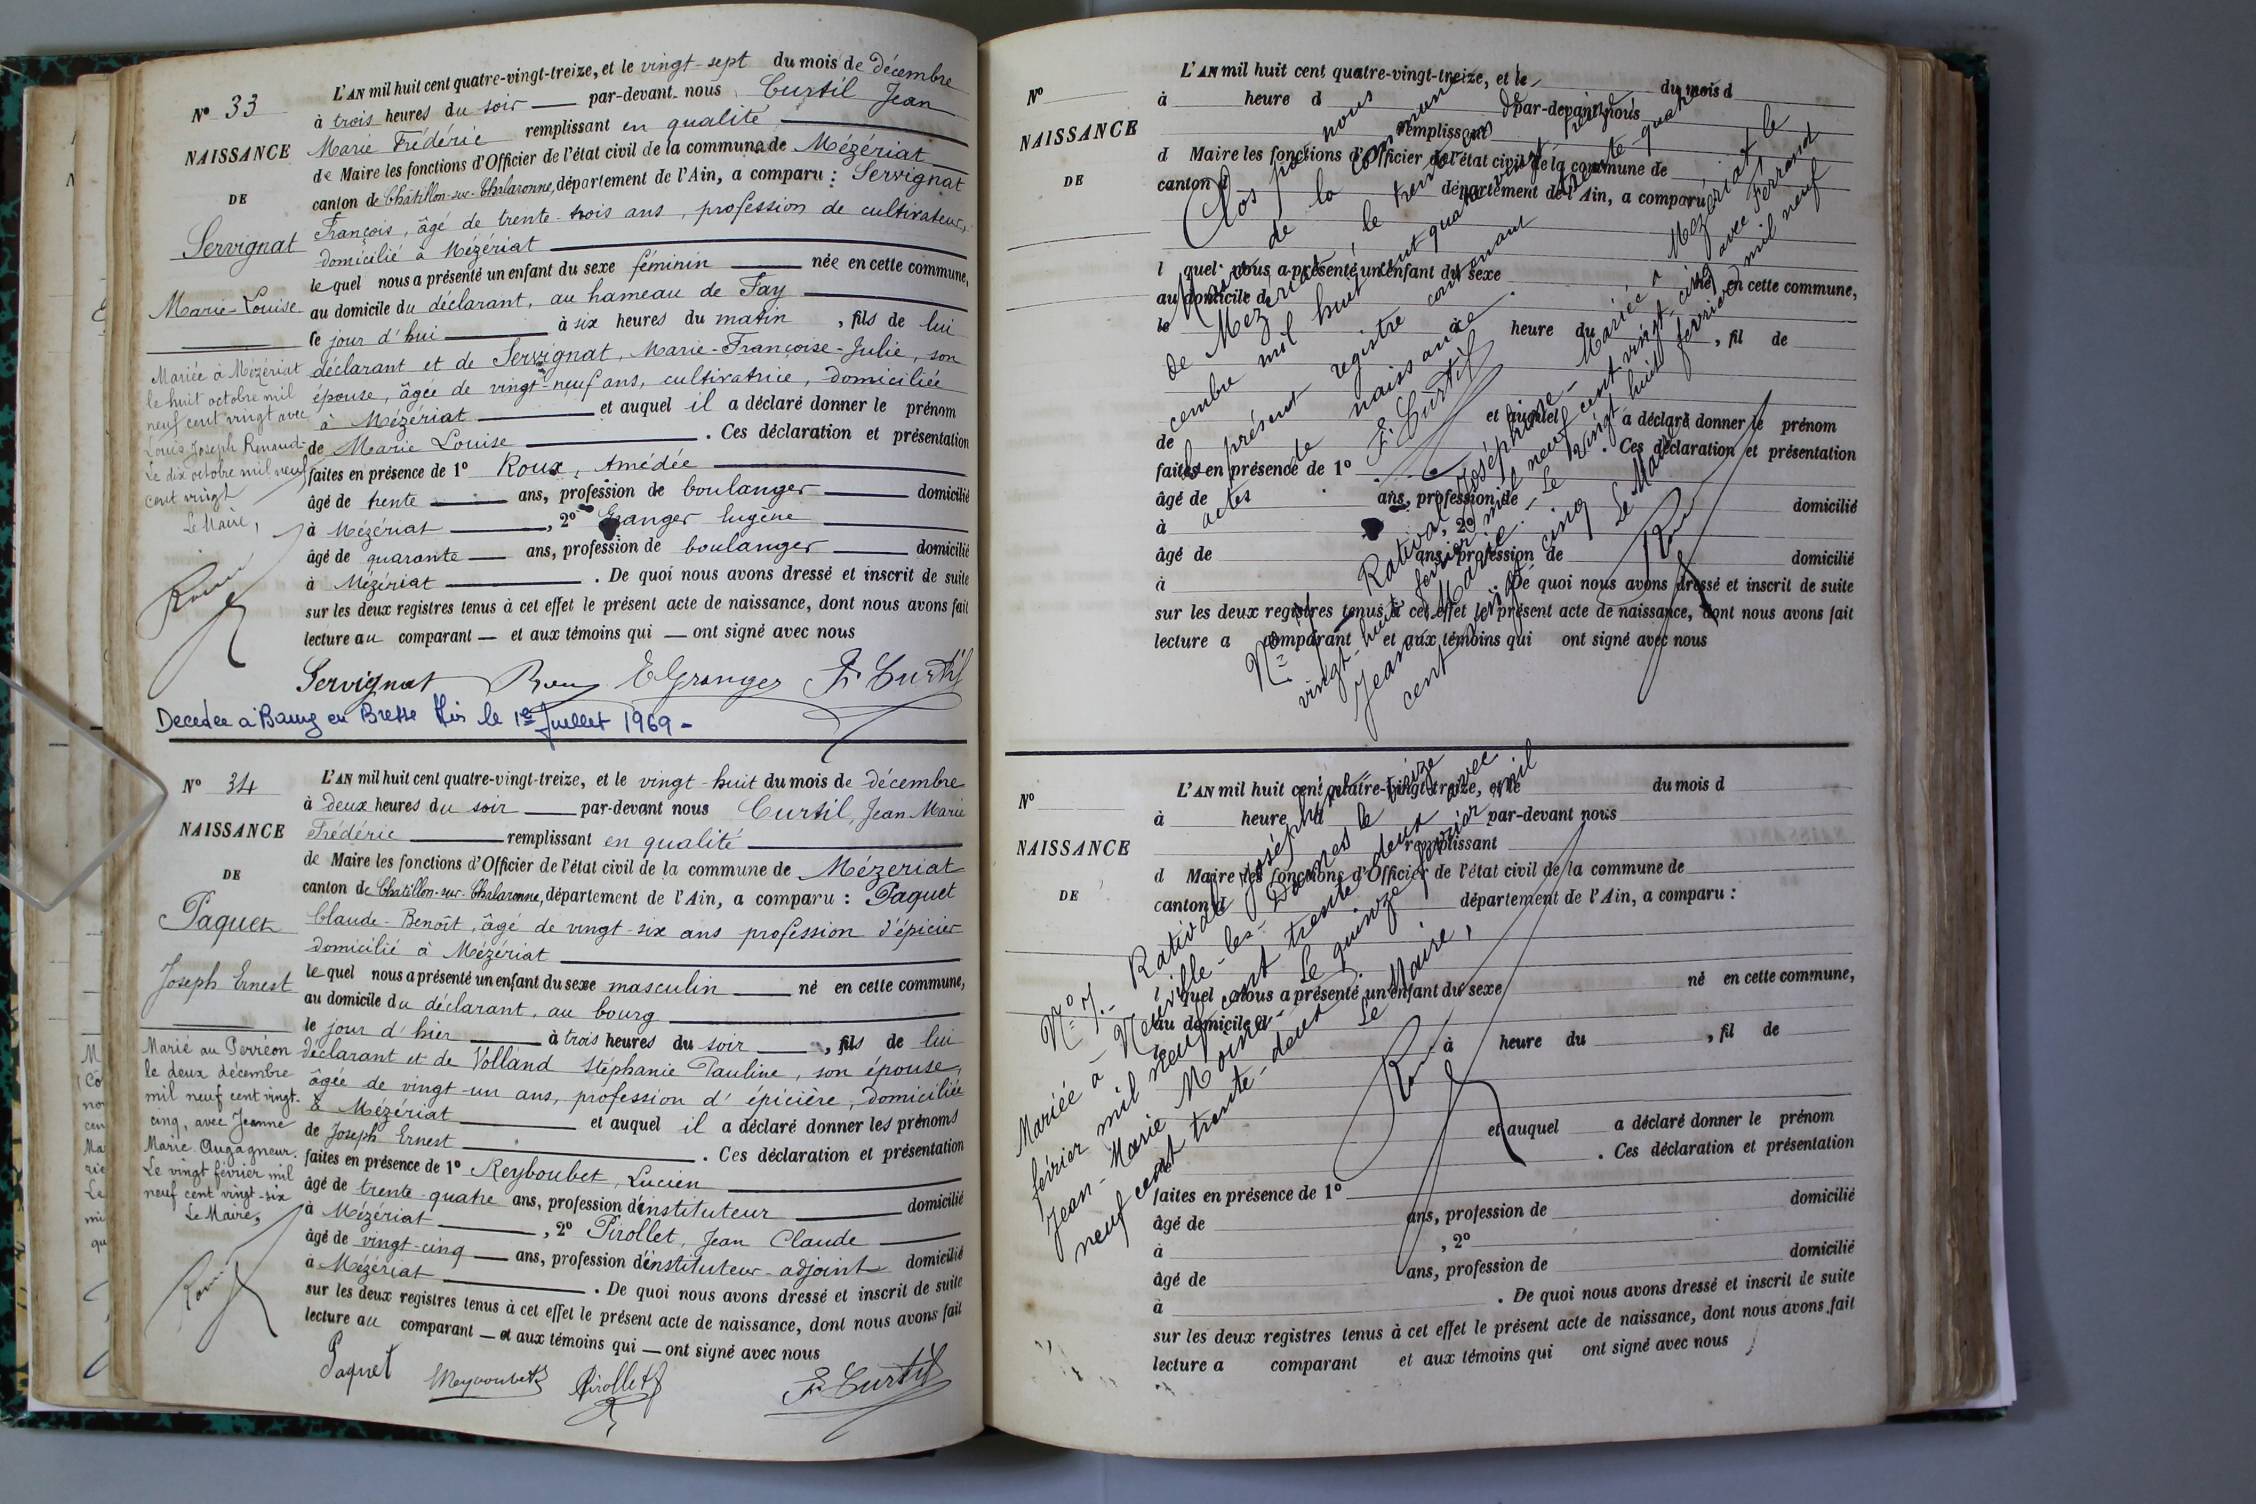 L'AN mil huit cent quatre-vingt-treize, et le vingt-sept du mois de décembre
N° 33
à trois heures du soir — par-devant nous Curtil Jean
Marie Frédéric remplissant en qualité
NAISSANCE
de Maire les fonctions d'Officier de l'état civil de la commune de Mézériat
DE
canton de Châtillon-sur-Chalaronne, département de l'Ain, a comparu : Servignat
François, âgé de trente-trois ans, profession de cultivateur,
Servignat
domicilié à Mézériat
le quel nous a présenté un enfant du sexe féminin — née en cette commune,
Marie-Louise
au domicile du déclarant, au hameau de Fay
le jour d'hui — à six heures du matin, fils de lui
déclarant et de Servignat, Marie-Françoise-Julie, son
épouse, âgée de vingt-neuf ans, cultivatrice, domiciliée
à Mézériat — et auquel il a déclaré donner le prénom
de Marie Louise — . Ces déclaration et présentation
faites en présence de 1° Roux, Amédée
âgé de trente — ans, profession de boulanger — domicilié
à Mézériat —, 2° Granger Eugène
âgé de quarante — ans, profession de boulanger — domicilié
à Mézériat — . De quoi nous avons dressé et inscrit de suite
sur les deux registres tenus à cet effet le présent acte de naissance, dont nous avons fait
lecture au comparant — et aux témoins qui — ont signé avec nous
Mariée à Mézériat
le huit octobre mil
neuf cent vingt avec
Louis Joseph Renaud
Le dix octobre mil neuf
cent vingt
Le Maire,
Servignat Roux E Granger Fr Curtil
Décédée à Bourg en Bresse Ain le 1er Juillet 1969 -
N° 34
L'AN mil huit cent quatre-vingt-treize, et le vingt-huit du mois de décembre
à deux heures du soir — par-devant nous Curtil, Jean Marie
NAISSANCE
Frédéric — remplissant en qualité
de Maire les fonctions d'Officier de l'état civil de la commune de Mézériat
DE
canton de Châtillon-sur-Chalaronne, département de l'Ain, a comparu : Paquet
Paquet
Claude-Benoît, âgé de vingt-six ans profession d'épicier
domicilié à Mézériat
Joseph Ernest
le quel nous a présenté un enfant du sexe masculin — né en cette commune,
au domicile du déclarant, au bourg
le jour d'hier — à trois heures du soir —, fils de lui
déclarant et de Volland Stéphanie Pauline, son épouse,
âgée de vingt-un ans, profession d'épicière, domiciliée
à Mézériat — et auquel il a déclaré donner les prénoms
de Joseph Ernest — . Ces déclaration et présentation
faites en présence de 1° Reyboubet, Lucien
âgé de trente-quatre ans, profession d'instituteur — domicilié
à Mézériat —, 2° Pirollet, Jean Claude
âgé de vingt-cinq — ans, profession d'instituteur-adjoint domicilié
à Mézériat — . De quoi nous avons dressé et inscrit de suite
sur les deux registres tenus à cet effet le présent acte de naissance, dont nous avons fait
lecture au comparant — et aux témoins qui — ont signé avec nous
Marié au Perréon
le deux décembre
mil neuf cent vingt-
cinq, avec Jeanne
Marie Augagneur.
Le vingt février mil
neuf cent vingt-six
Le Maire,
Paquet Reyboubet Pirollet Fr Curtil
L'AN mil huit cent quatre-vingt-treize, et le du mois d
N°
à heure d par-devant nous
NAISSANCE
remplissant
d Maire les fonctions d'Officier de l'état civil de la commune de
DE
canton d département de l'Ain, a comparu
l quel nous a présenté un enfant du sexe né en cette commune,
au domicile d
le à heure du , fil de
et auquel a déclaré donner le prénom
de . Ces déclaration et présentation
faites en présence de 1°
âgé de ans, profession de domicilié
à , 2°
âgé de ans, profession de domicilié
à . De quoi nous avons dressé et inscrit de suite
sur les deux registres tenus à cet effet le présent acte de naissance, dont nous avons fait
lecture a comparant et aux témoins qui ont signé avec nous
Clos par nous
de la commune de
de Mézériat, le trente-un dé-
cembre mil huit cent quatre-vingt-treize
le présent registre contenant trente-quatre
actes de naissance.
F. Curtil
Rativat Joséphine - Mariée à Mézériat le
vingt-huit février mil neuf cent vingt-cinq avec Ferrand
Jean Marie. - Le vingt huit février mil neuf
cent vingt cinq Le Maire
L'AN mil huit cent quatre-vingt-treize, et le du mois d
N°
à heure d par-devant nous
NAISSANCE
remplissant
d Maire les fonctions d'Officier de l'état civil de la commune de
DE
canton d département de l'Ain, a comparu :
l quel nous a présenté un enfant du sexe né en cette commune,
au domicile d
le à heure du , fil de
et auquel a déclaré donner le prénom
. Ces déclaration et présentation
faites en présence de 1°
âgé de ans, profession de domicilié
à , 2°
âgé de ans, profession de domicilié
à . De quoi nous avons dressé et inscrit de suite
sur les deux registres tenus à cet effet le présent acte de naissance, dont nous avons fait
lecture a comparant et aux témoins qui ont signé avec nous
N° 7.- Rativat Joséphine
Mariée à Neuville-les-Dames le treize
février mil neuf cent trente deux avec
Jean-Marie Moine - Le quinze février mil
neuf cent trente-deux. Le Maire,